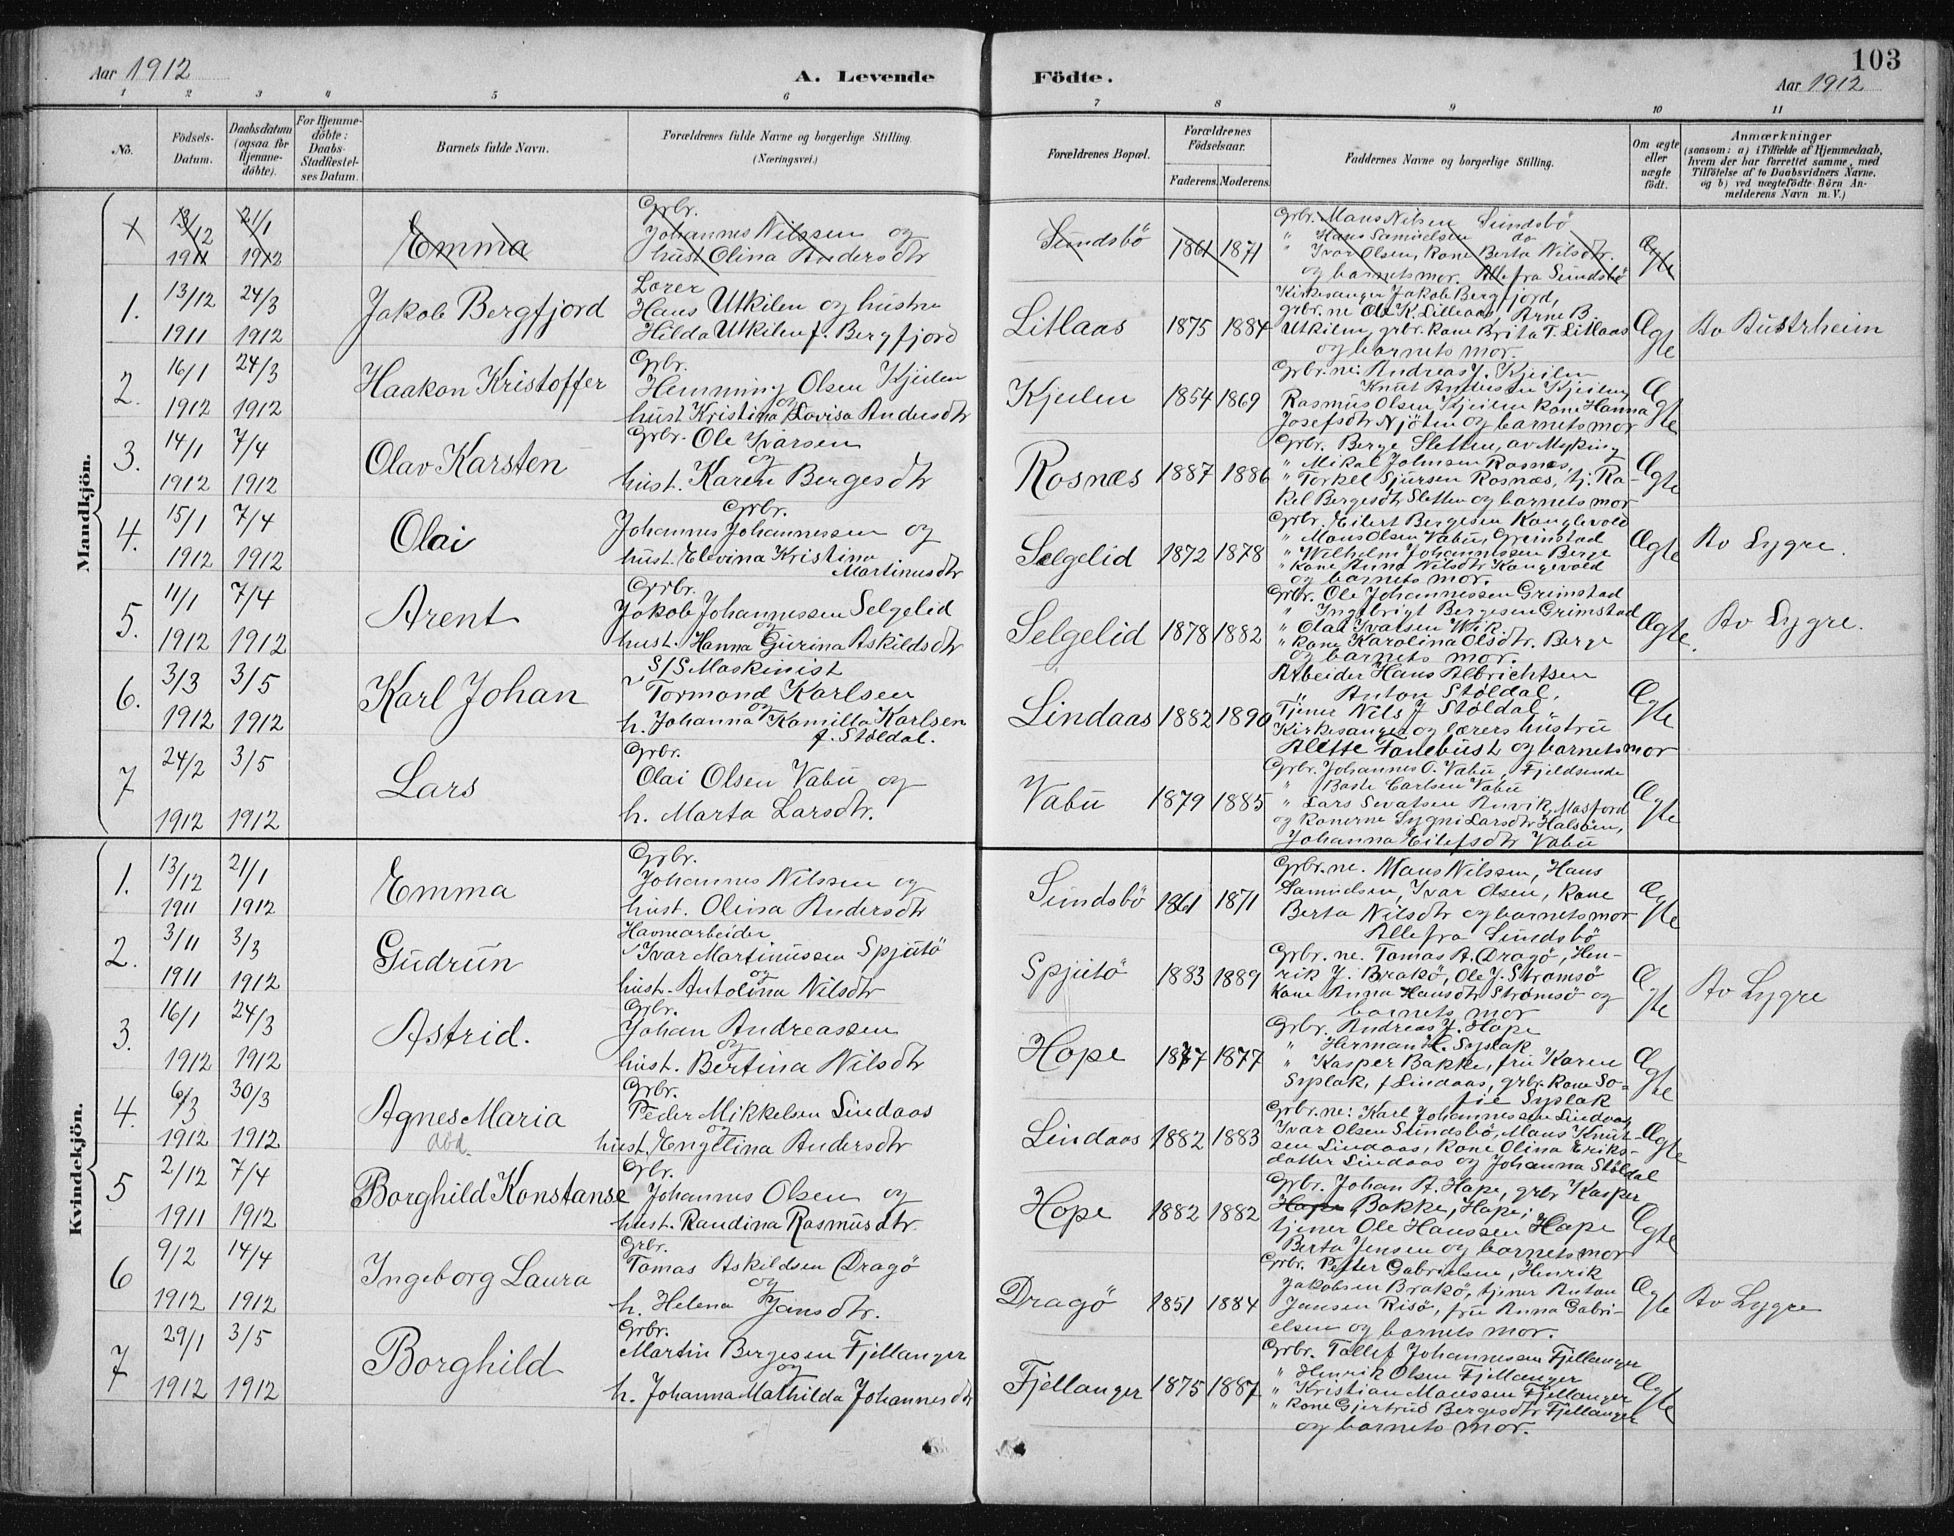 103
Aar 1912
A. Levende
Födte.
Aar 1912
1 2 3 4 5 6 7 8 9 10 11
No.
Födsels-
Datum.
Daabsdatum
(ogsaa for
Hjemme-
döbte).
For Hjemme-
döbte:
Daabs-
Stadfæstel-
ses Datum.
Barnets fulde Navn.
Forældrenes fulde Navne og borgerlige Stilling.
(Næringsvei.)
Forældrenes Bopæl.
Forældrenes
Födselsaar.
Faderens. Moderens.
Faddernes Navne og borgerlige Stilling.
Om ægte
eller
uægte
födt.
Anmærkninger
(saasom: a) i Tilfælde af Hjemmedaab,
hvem der har forrettet samme, med
Tilföielse af to Daabsvidners Navne,
og b) ved uægtefödte Börn An-
melderens Navn m. V.)
Mandkjön.
13/12 1911 21/1 1912
Emma
Grbr.
Johannes Nilssen og
hust Olina Andersdtr
Sundsbö 1861 1871
Grbr. Mans Nilsen Sundsbö
" Hans Samuelsen do
" Ivar Olsen, Kone Berta Nilsdtr.
og barnets mor. Alle fra Sundsbö
Ægte
1. 13/12 1911 24/3 1912
Jakob Bergfjord
Lærer
Hans Utkilen og hustru
Hilda Utkilen f. Bergfjord
Litlaas 1875 1884
Kirkesanger Jakob Bergfjord,
grbr.ne Ole K. Litlaas, Arne B.
Utkilen, grbr. kone Brita T. Litlaas
og barnets mor.
Ægte
Av Austrheim
2. 16/1 1912 24/3 1912
Haakon Kristoffer
Grbr.
Hemming Olsen Kjeilen
og
hust Kristina Lovisa Andersdtr
Kjeilen 1854 1869
Grbr.ne: Andreas J. Kjeilen
Knut Andersen Kjeilen,
Rasmus Olsen Kjeilen Kone Hanna
Josefsdtr Njöten og barnets mor
Ægte
3. 14/1 1912 7/4 1912
Olav Karsten
Grbr. Ole Ivarsen
og
hust. Karen Bergesdtr
Rosnæs 1887 1886
Grbr. Berge Sletten, av Myking
" Mikal Johnsen Rosnæs,
" Torkel Sjursen Rosnæs, tj. Ra-
kel Bergesdtr Sletten og barnets mor
Ægte
4. 15/1 1912 7/4 1912
Olai
Grbr.
Johannes Johannessen og
hust. Elevina Kristina
Martinusdtr
Selgelid 1872 1878
Grbr. Eilert Bergesen Kanglevold
" Mons Olsen Vabu, Grimstad
" Wilhelm Johannessen Berge
" Kone Anna Nilsdtr Kanglevold
og barnets mor.
Ægte
Av Lygre.
5. 11/1 1912 7/4 1912
Arent
Grbr.
Jakob Johannessen Selgelid
og
hust. Hanna Gurina Askildsdtr
Selgelid 1878 1882
Grbr. Ole Johannessen Grimstad
" Ingebrigt Bergesen Grimstad
" Olai Ivarsen Wik
" kone Karolina Olsdtr. Berge
og barnets mor.
Ægte.
Av Lygre.
6. 3/3 1912 3/5 1912
Karl Johan
S/S Maskinist
Tormond Karlsen
og
h. Johanna Kamilla Karlsen
f. Stöldal.
Lindaas 1882 1890
Arbeider Hans Albrichtsen
" Anton Stöldal,
Tjener Nils J Stöldal,
Kirkesanger og lærers hustru
Alette Tanebust og barnets mor
Ægte
7 24/2 1912 3/5 1912
Lars
Grbr.
Olai Olsen Vabu og
h. Marta Larsdtr.
Vabu 1879 1885
Grbr. Johannes O. Vabu, Fjeldsende
" Baste Carlsen Vabu
" Lars Anvik, Masfjord
og Konerne Sygni Larsdtr Halsöen,
Johanna Eilefsdtr Vabu
Ægte
Kvindekjön.
1. 13/12 1911 21/1 1912
Emma
Grbr.
Johannes Nilssen og
hust. Olina Andersdtr
Sundsbö 1861 1871
Grbr.ne. Mans Nilssen, Hans
Samuelsen, Ivar Olsen, Kone
Berta Nilsdtr og barnets mor
Alle fra Sundsbö
Ægte
2. 3/11 1911 3/3 1912
Gudrun
Havnearbeider
Ivar Martinussen Spjutö
og
hust. Antolina Nilsdtr
Spjutö 1883 1889
Grbr. ne. Tomas A. Dragö, Hen-
rik J. Brakö, Ole J. Stromsö
Kone Anna Hansdtr Stromsö og
barnets mor
Ægte
Av Lygre
3. 16/1 1912 24/3 1912
Astrid.
Grbr.
Johan Andreassen
og
hust. Bertina Nilsdtr
Hope 1877 1877
Grbr. Andreas J. Hope
" Herman H. Syslak
" Kasper Bakke, fru Karen
Syslak, f Lindaas, grbr. Kone So-
fie Syslak
Ægte
4. 6/3 1912 30/3 1912
Agnes Maria
död.
Grbr.
Peder Mikkelsen Lindaas
og
hust. Engelina Andersdtr
Lindaas 1882 1883
Grbr.ne: Karl Johannessen Lindaas
Ivar Olsen Sundsbö, Mans Knut-
sen Lindaas, Kone Olina Eriks-
datter Lindaas og Johanna Stöldal
Ægte
5 2/12 1911 7/4 1912
Borghild Konstanse
Grbr.
Johannes Olsen og
hust. Randina Rasmusdtr.
Hope 1882 1882
Grbr. Johan A. Hope, grbr Kasper
Hope Bakke, Hope;
tjener Ole Hanssen Hope
Berta Jensen og barnets mor
Ægte
6 9/2 1912 14/4 1912
Ingeborg Laura
Grbr.
Tomas Askildsen Dragö
og
h. Helena Jansdtr.
Dragö 1851 1884
Grbr. Peder Gabrielsen, Henrik
Jakobsen Brakö, tjener Anton
Jansen Risö, fru Anna Gabri-
elsen og barnets mor.
Ægte
Av Lygre
7 29/1 1912 3/5 1912
Borghild
Grbr.
Martin Bergesen Fjellanger
og
h. Johanna Mathilda Johannesdtr
Fjellanger 1875 1887
Grbr. Tollef Johannessen Fjellanger
" Henrik Olsen Fjellanger
" Kristian Monssen Fjellanger
" Kone Gjertrud Bergesdtr Fjellanger
og barnets mor.
Ægte